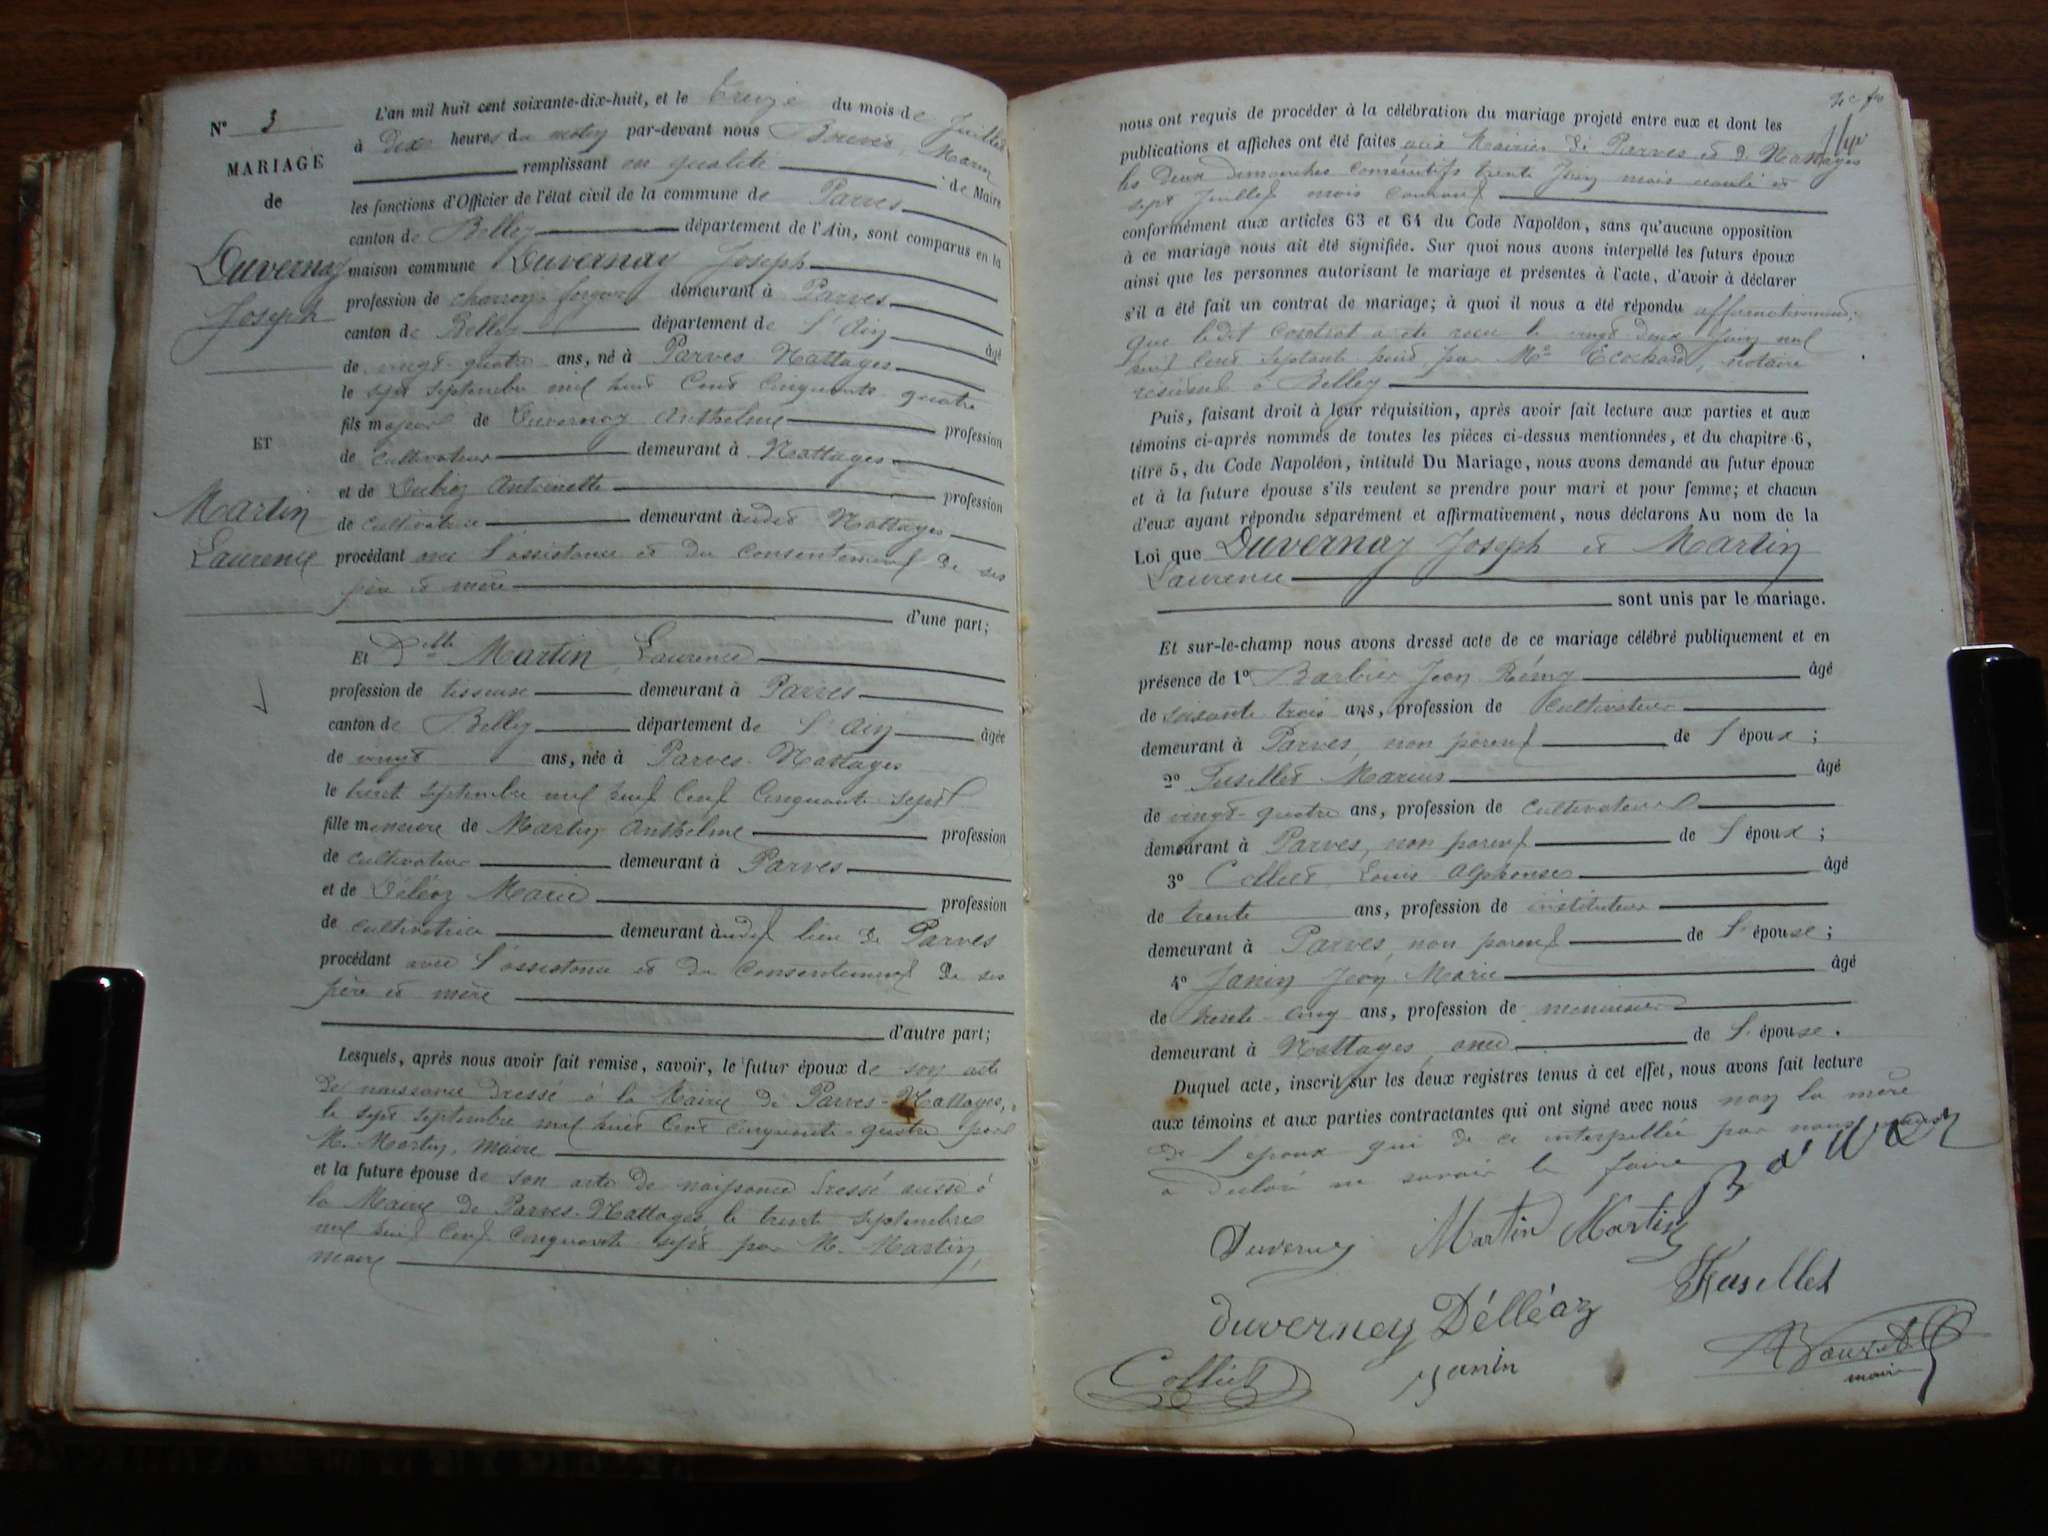 N° 3
MARIAGE
de
Duvernay
Joseph
ET
Martin
Laurence
L'an mil huit cent soixante-dix-huit, et le treize du mois de Juillet
à Dix heures du matin par-devant nous
remplissant en qualité de Maire
les fonctions d'Officier de l'état civil de la commune de Parves
canton de Belley département de l'Ain, sont comparus en la
maison commune Duvernay Joseph
profession de charron-forgeron demeurant à Parves
canton de Belley département de l'Ain âgé
de vingt-quatre ans, né à Parves-Nattages
le sept septembre mil huit cent cinquante-quatre
fils majeur de Duvernay Anthelme profession
de cultivateur demeurant à Nattages
et de Dubiez Antoinette profession
de cultivatrice demeurant à Nattages
procédant avec l'assistance et du consentement de ses
père et mère
d'une part;
Et Delle Martin Laurence
profession de tisseuse demeurant à Parves
canton de Belley département de l'Ain âgée
de vingt ans, née à Parves-Nattages
le trente septembre mil huit cent cinquante-sept
fille mineure de Martin Anthelme profession
de cultivateur demeurant à Parves
et de Déléaz Marie profession
de cultivatrice demeurant à udit lieu de Parves
procédant avec l'assistance et du consentement de ses
père et mère
d'autre part;
Lesquels, après nous avoir fait remise, savoir, le futur époux de son acte
de naissance dressé à la Mairie de Parves-Nattages,
le sept septembre mil huit cent cinquante-quatre par
M. Martin, maire
et la future épouse de son acte de naissance dressé aussi à
la Mairie de Parves-Nattages le trente septembre
mil huit cent cinquante-sept par M. Martin,
maire
nous ont requis de procéder à la célébration du mariage projeté entre eux et dont les
publications et affiches ont été faites aux Mairies de Parves et de Nattages
les deux dimanches consécutifs trente Juin mois écoulé et
sept Juillet mois courant
conformément aux articles 63 et 64 du Code Napoléon, sans qu'aucune opposition
à ce mariage nous ait été signifiée. Sur quoi nous avons interpellé les futurs époux
ainsi que les personnes autorisant le mariage et présentes à l'acte, d'avoir à déclarer
s'il a été fait un contrat de mariage; à quoi il nous a été répondu affirmativement;
que ledit contrat a été reçu le vingt deux Juin mil
huit cent septante huit par Me Ecochard, notaire
résidant à Belley
Puis, faisant droit à leur réquisition, après avoir fait lecture aux parties et aux
témoins ci-après nommés de toutes les pièces ci-dessus mentionnées, et du chapitre 6,
titre 5, du Code Napoléon, intitulé Du Mariage, nous avons demandé au futur époux
et à la future épouse s'ils veulent se prendre pour mari et pour femme; et chacun
d'eux ayant répondu séparément et affirmativement, nous déclarons Au nom de la
Loi que Duvernay Joseph et Martin
Laurence
sont unis par le mariage.
Et sur-le-champ nous avons dressé acte de ce mariage célébré publiquement et en
présence de 1° Barbier Jean Rémy âgé
de soixante trois ans, profession de cultivateur
demeurant à Parves, non parent de l'époux;
2° Fusillet Marius âgé
de vingt-quatre ans, profession de cultivateur
demeurant à Parves, non parent de l'époux;
3° Colliet Louis Alphonse âgé
de trente ans, profession de instituteur
demeurant à Parves, non parent de l'épouse;
4° Janin Jean-Marie âgé
de trente-cinq ans, profession de menuisier
demeurant à Nattages, ami de l'épouse.
Duquel acte, inscrit sur les deux registres tenus à cet effet, nous avons fait lecture
aux témoins et aux parties contractantes qui ont signé avec nous non la mère
de l'époux qui de ce interpellée par nous
a déclaré ne savoir le faire
Duverney Martin Martin
Fusillet
Duverney Délléaz
Colliet Janin
maire